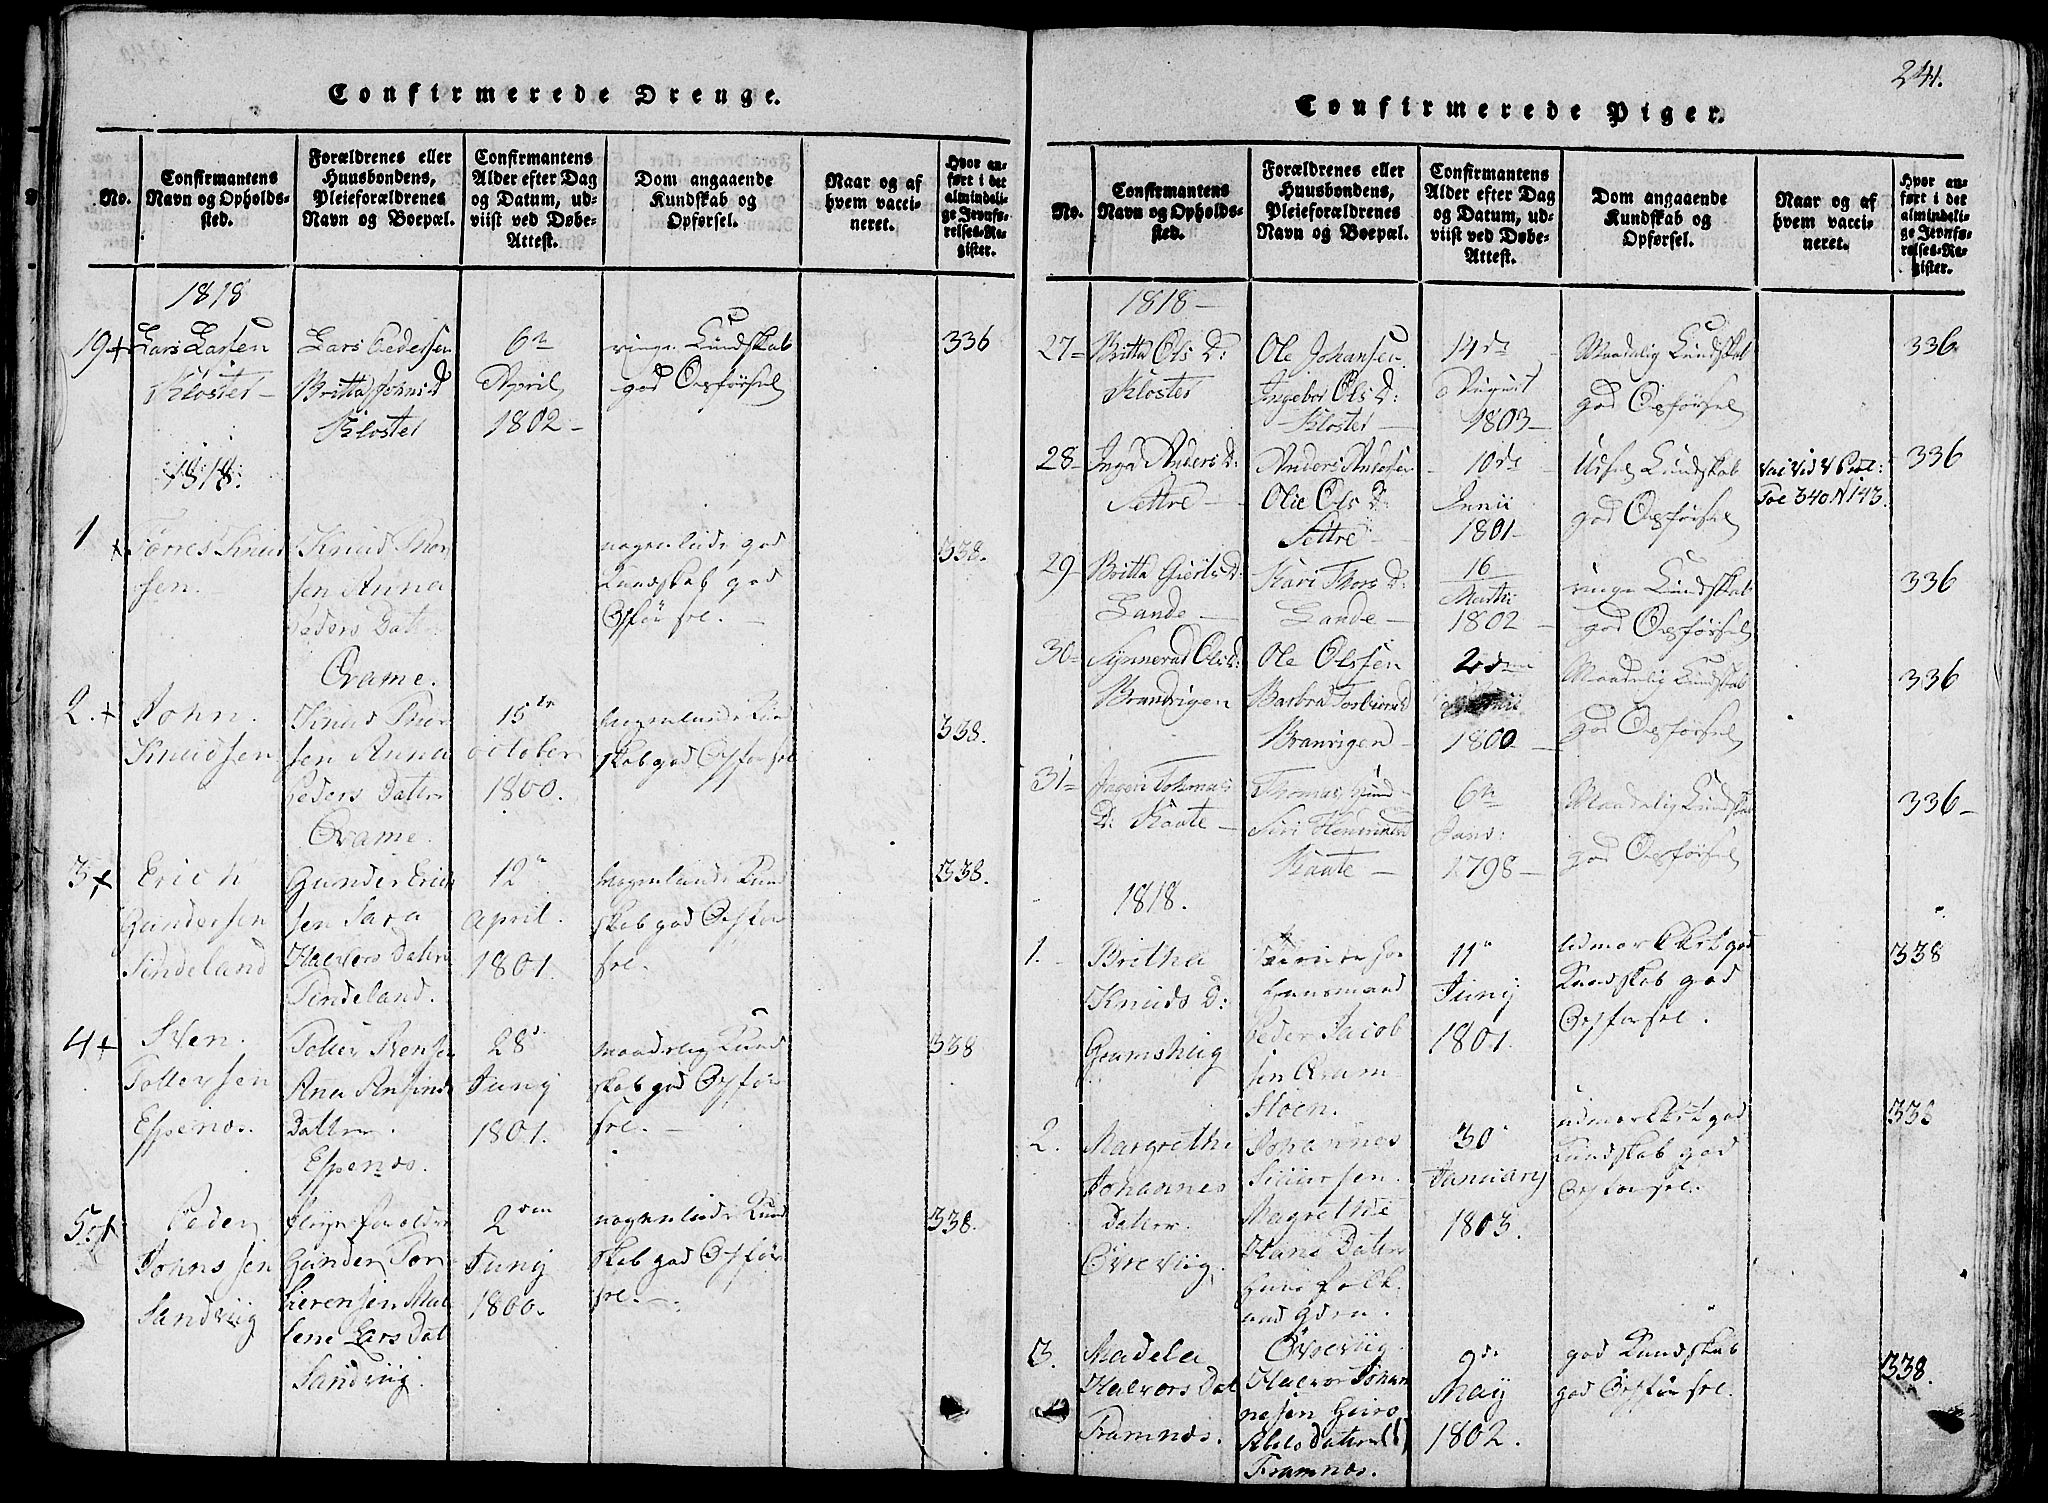 241.
Confirmerede Drenge.
No.
Confirmantens
Navn og Opholds-
sted.
Forældrenes eller
Huusbondens,
Pleieforældrenes
Navn og Boepæl.
Confirmantens
Alder efter Dag
og Datum, ud-
viist ved Døbe-
Attest.
Dom angaaende
Kundskab og
Opførsel.
Naar og af
hvem vacci-
neret.
Hvor an-
ført i det
almindeli-
ge Jevnfø-
relses-Re-
gister.
1818
19+
Lars Larsen
Kloster –
Lars Pedersen
Britta Johns D
Kloster
6te
April
1802 –
ringe Kundskab
god Opførsel
336
1818:
1 +
Torres Knud
sen.
Knud Thor
sen Anna
Peders Dater
Qvame.
nogenlunde god
Kundskab god
Opførsel. –
338.
2.+
John
Knudsen
Knud Thor
sen Anna
Peders Datter
Qvame.
15de
october
1800.
nogenlunde Kund
skab god Opførsel
338.
3+
Erich
Gundersen
Tindeland
Gunder Erich
sen Sara
Halvors Datter
Tindeland.
12te
april.
1801.
nogenlunde Kund
skab god Opfør
sel.
338.
4+
Sven.
Tollevsen
Espenæs.
Tollev Svensen
Ana Amunds
Datter.
Espenæs.
28de
Juny
1801.
maadelig Kund
skab god Opfør
sel. –
338
5.+
Peder
Johnssen
Sandviig
Gunder Tor
Lars Dat
Sandviig.
2den
Juny
1800.
nogenlunde Kund
skab god Opfør
sel. –
338.
Confirmerede Piger.
No.
Confirmantens
Navn og Opholds-
sted.
Forældrenes eller
Huusbondens,
Pleieforældrenes
Navn og Boepæl.
Confirmantens
Alder efter Dag
og Datum, ud-
viist ved Døbe-
Attest.
Dom angaaende
Kundskab og
Opførsel.
Naar og af
hvem vacci-
neret.
Hvor an-
ført i det
almindeli-
ge Jevnfø-
relses-Re-
gister.
1818 –
27 –
Britta Ols D:
Kloster
Ole Johansen
Ingebor Ols D:
Kloster –
14de
August
1803 –
Maadelig Kundskab
god Opførsel
336
28 –
Inga Anders D:
Settre –
Anders Andersen
Olie Ols D:
Settre –
10de
Junii
1801 –
god Opførsel
340 N 143.
336
29 –
Britta Giert D:
Lande –
Kari Thors D:
Lande –
16
Martii
1802 –
ringe Kundskab
god Opførsel
336
30 –
Synnerad Ols D:
Brandvigen
Ole Olssen
Barbra
Branvigen –
2den
1800 –
Maadelig Kundskab
god Opførsel
336
31 –
Tohmas
D: Kaate –
Thomas
Siri
Kaate –
6te
Janv:
1798 –
Maadelig Kundskab
god Opførsel
336 –
1818.
1.
Brithe
Knuds D:
Gramshug
Huusmand
Peder Jacob
sen Qvam
Stoen.
11te
Juny
1801.
udmærkket god
Kundskab god
Opførsel.
338
2.
Margrethe
Johannes
Datter.
Øvreviig.
Johannes
Siversen.
Magrethe
Hans Datter
Huusfolk
Øvreviig.
30te
January
1803.
udmærkket god
Kundskab god
Opførsel.
338
3.
Madela
Halvors Dat
Framnæs.
Halvor Johan
nesen Geiro
Framnæs.
9de
May
1802.
god Kundskab
god Opførsel.
338.